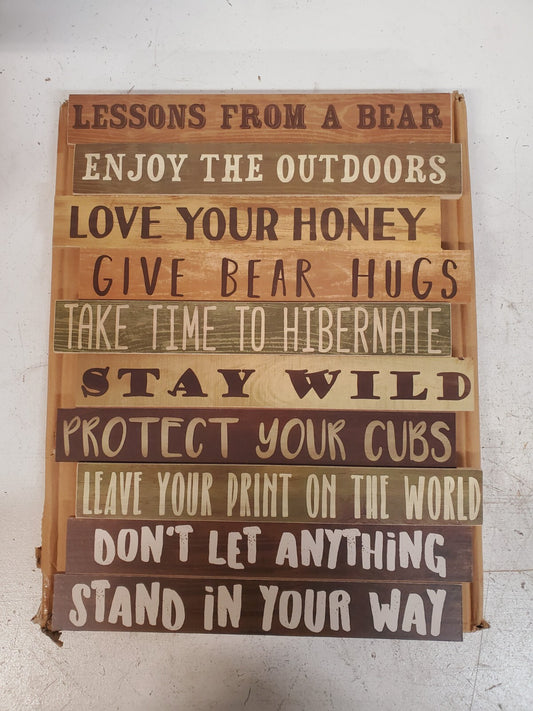 LESSONS FROM A BEAR
ENJOY THE OUTDOORS
LOVE YOUR HONEY
GIVE BEAR HUGS
TAKE TIME TO HIBERNATE
STAY WILD
PROTECT YOUR CUBS
LEAVE YOUR PRINT ON THE WORLD
DON'T LET ANYTHiNG
STAND iN YOUR WAY